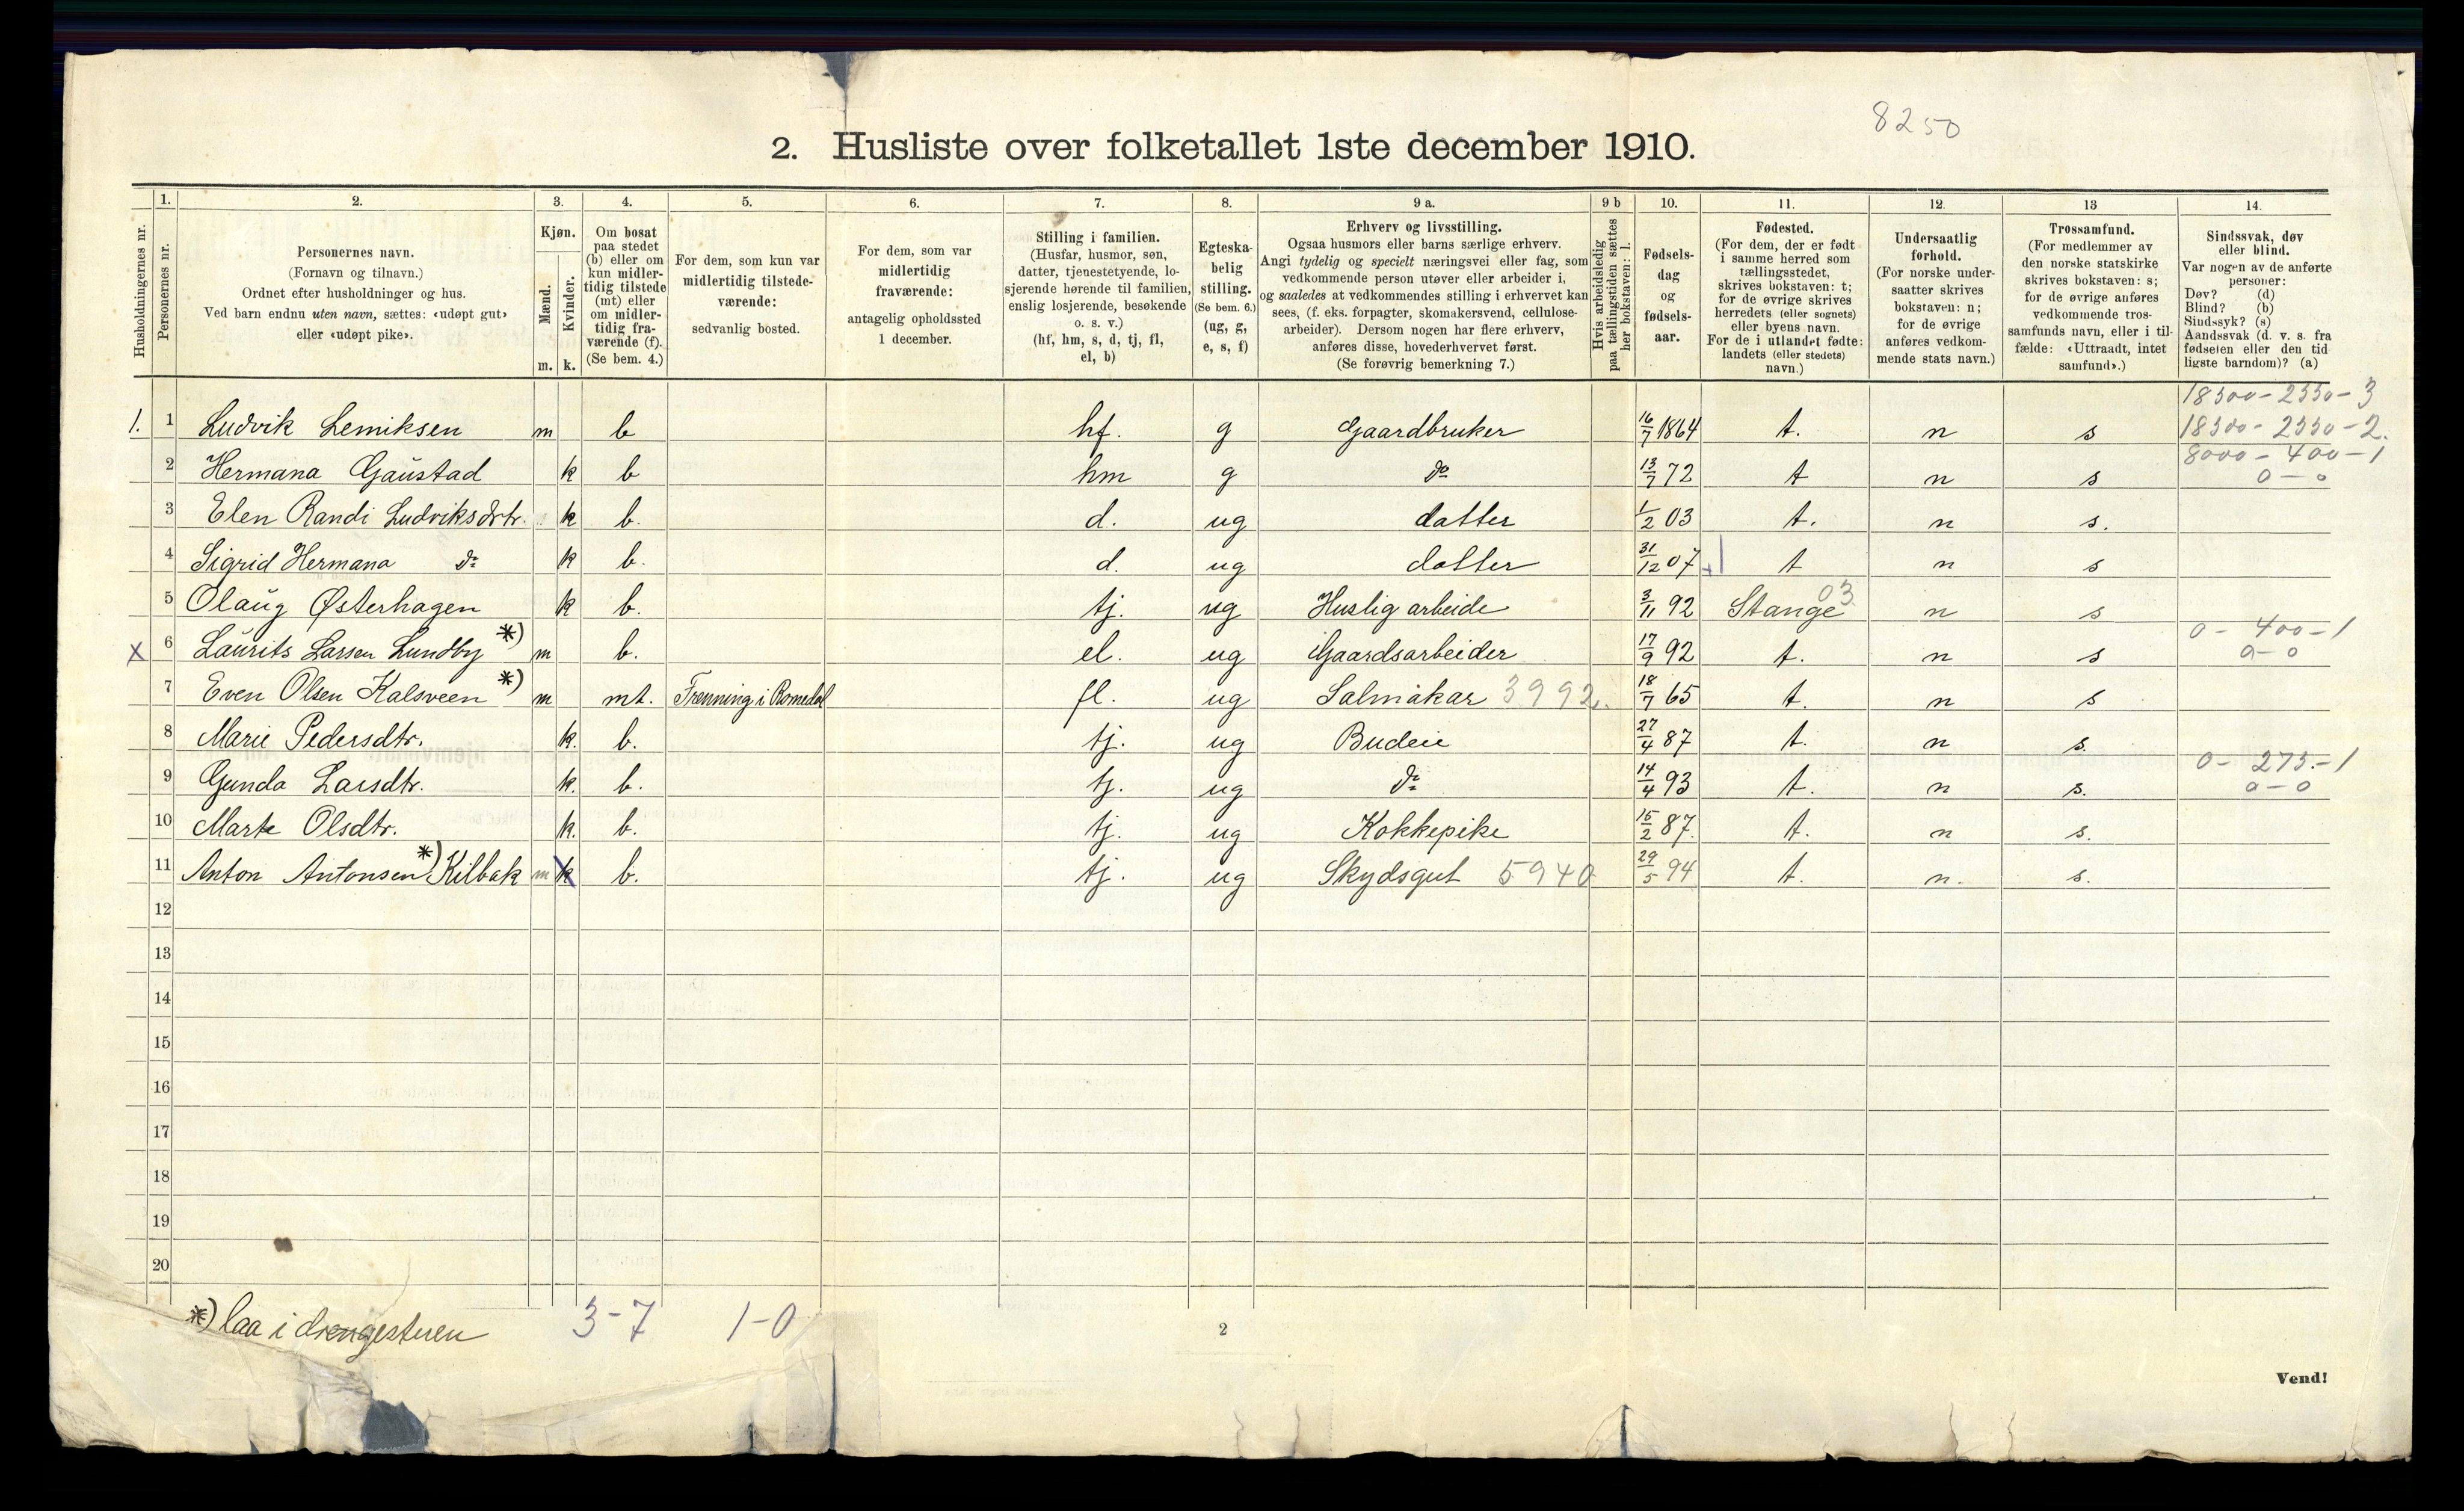 8250
2. Husliste over folketallet 1ste december 1910.
Husholdningernes nr.
1.
Personernes nr.
2.
Personernes navn.
(Fornavn og tilnavn.)
Ordnet efter husholdninger og hus.
Ved barn endnu uten navn, sættes: «udøpt gut»
eller «udøpt pike».
3.
Kjøn.
Mænd.
Kvinder.
m. k.
4.
Om bosat
paa stedet
(b) eller om
kun midler-
tidig tilstede
(mt) eller
om midler-
tidig fra-
værende (f).
(Se bem. 4.)
5.
For dem, som kun var
midlertidig tilstede-
værende:
sedvanlig bosted.
6.
For dem, som var
midlertidig
fraværende:
antagelig opholdssted
1 december.
7.
Stilling i familien.
(Husfar, husmor, søn,
datter, tjenestetyende, lo-
sjerende hørende til familien,
enslig losjerende, besøkende
o. s. v.)
(hf, hm, s, d, tj, fl,
el, b)
8.
Egteska-
belig
stilling.
(Se bem. 6.)
(ug, g,
e, s, f)
9 a.
Erhverv og livsstilling.
Ogsaa husmors eller barns særlige erhverv.
Angi tydelig og specielt næringsvei eller fag, som
vedkommende person utøver eller arbeider i,
og saaledes at vedkommendes stilling i erhvervet kan
sees, (f. eks. forpagter, skomakersvend, cellulose-
arbeider). Dersom nogen har flere erhverv,
anføres disse, hovederhvervet først.
(Se forøvrig bemerkning 7.)
9 b
Hvis arbeidsledig
paa tællingstiden sættes
her bokstaven: l.
10.
Fødsels-
dag
og
fødsels-
aar.
11.
Fødested.
(For dem, der er født
i samme herred som
tællingsstedet,
skrives bokstaven: t;
for de øvrige skrives
herredets (eller sognets)
eller byens navn.
For de i utlandet fødte:
landets (eller stedets)
navn.)
12.
Undersaatlig
forhold.
(For norske under-
saatter skrives
bokstaven: n;
for de øvrige
anføres vedkom-
mende stats navn.)
13
Trossamfund.
(For medlemmer av
den norske statskirke
skrives bokstaven: s;
for de øvrige anføres
vedkommende tros-
samfunds navn, eller i til-
fælde: «Uttraadt, intet
samfund».)
14.
Sindssvak, døv
eller blind.
Var nogen av de anførte
personer:
Døv? (d)
Blind? (b)
Sindssyk? (s)
Aandssvak (d. v. s. fra
fødselen eller den tid
ligste barndom)? (a)
18500-2550-3
1. 1 Ludvik Lemiksen m b hf. g Gaardbruker 16/7 1864 t. n s 18500-2550-2.
8000-400-1
2 Hermana Gaustad k b hm g do 13/7 72 t n s 0-0
3 Elen Randi Ludviksdtr. k b. d. ug datter 1/2 03 t. n s.
4 Sigrid Hermana do k b. d. ug datter 31/12 07 t n s
5 Olaug Østerhagen k b. tj. ug Huslig arbeide 3/11 92 Stange 03 n s
0-400-1
x 6 Laurits Larsen Lundby *) m b. el. ug Gaardsarbeider 17/9 92 t. n s 0-0
7 Even Olsen Kalsveen *) m mt. Frenning i Romedal fl. ug Salmakar 3992. 18/7 65 t. n s
8 Marie Pedersdtr. k. b. tj. ug Budeie 27/4 87 t. n s.
0-275.-1
9 Gunda Larsdtr. k. b. tj. ug do 14/4 93 t. n s. 0-0
10 Marte Olsdtr. k. b. tj. ug Kokkepike 15/2 87. t. n s.
11 Anton Antonsen *) Kilbak m k b. tj. ug Skydsgut 5940 29/5 94 t. n. s.
12
13
14
15
16
17
18
19
20
*) laa i drengestuen 3-7 1-0
2
Vend!